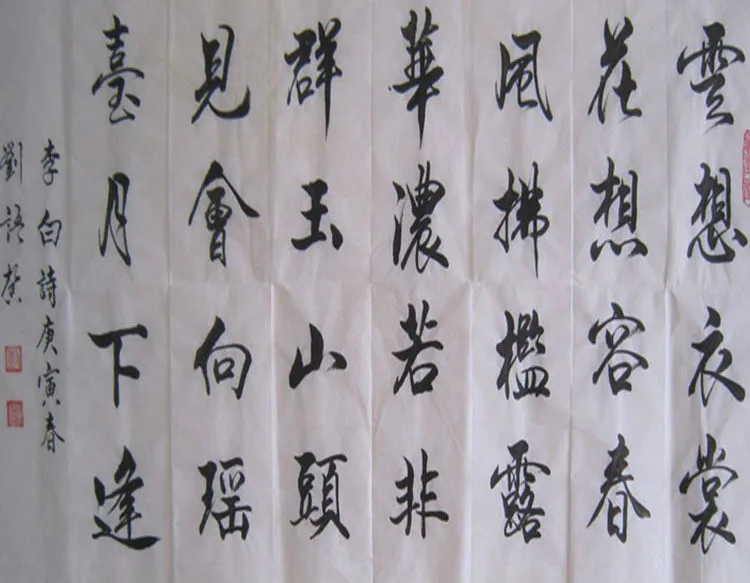 雲想衣裳
花想容春
風拂檻露
華濃若非
群玉山頭
見會向瑶
臺月下逢
李白詩庚寅春
劉語